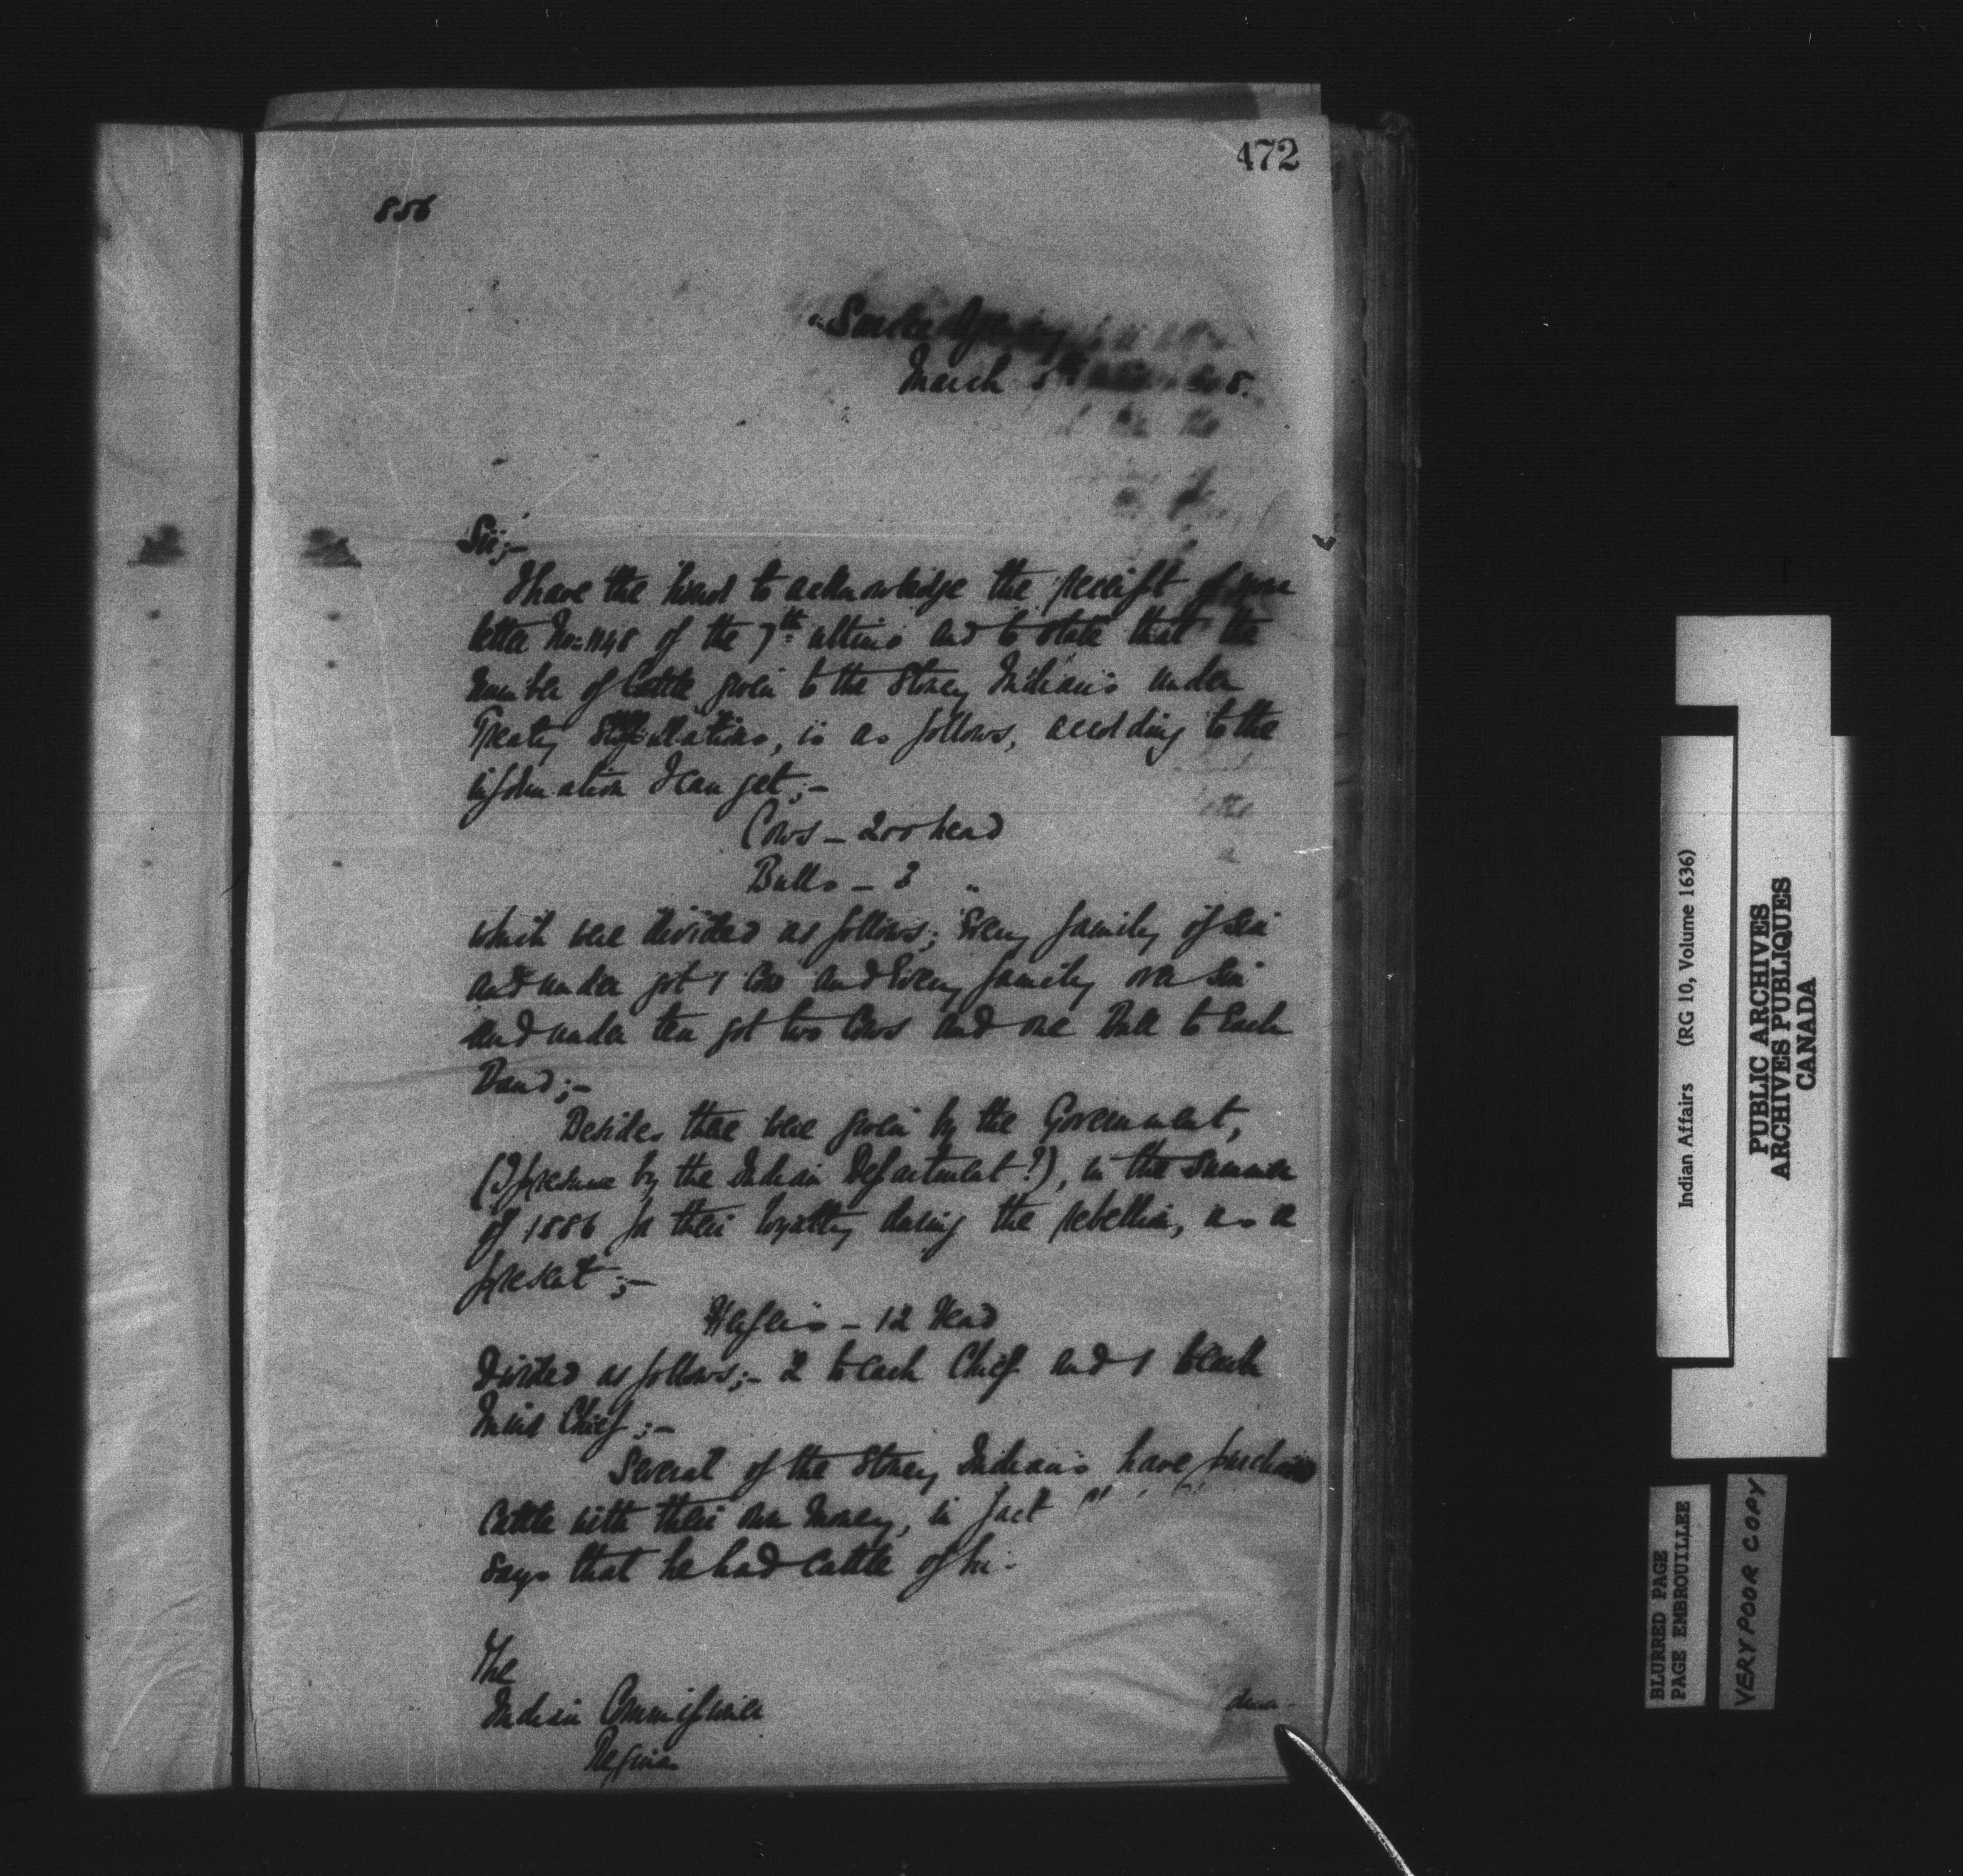 472
856
Sarcee Agency
March 8.
Sir;-
I have the honor to acknowledge the receipt of your
letter No: 1148 of the 7th ultimo and to state that the
number of Cattle given to the Stoney Indians under
Treaty Stipulations, is as follows, according to the
information I can get;-
Cows - 200 head
Bulls - 3 "
which were divided as follows; Every family of six
and under got 1 Cow and Every family over six
and under ten got two Cows and one Bull to Each
Band;-
Besides there were given by the Government,
(I presume by the Indian Department?), in the summer
of 1886 for their loyalty during the rebellion, as a
present;-
Heifers - 12 Head
Divided as follows;- 2 to each Chief and 1 to each
Minor Chief;-
Several of the Stoney Indians have purchased
Cattle with their own money, in fact
says that he had cattle of
The
Indian Commissioner
Regina
Indian Affairs (RG 10, Volume 1636)
PUBLIC ARCHIVES
ARCHIVES PUBLIQUES
CANADA
BLURRED PAGE
PAGE EMBROUILLEE
VERY POOR COPY